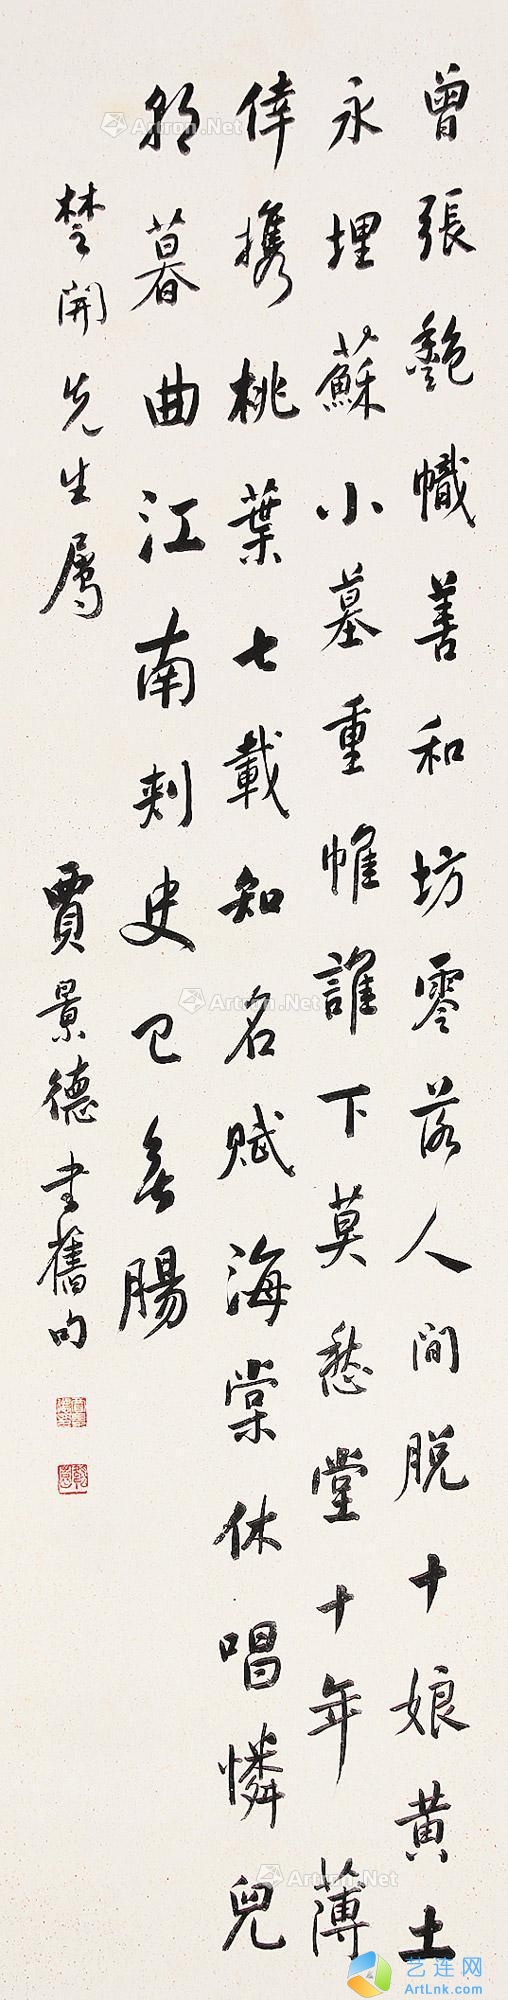 曾張艷幟善和坊零落人間脫十娘黃土
永埋蘇小墓重帷誰下莫愁堂十年薄
倖携桃葉七載知名賦海棠休唱憐兒
朝暮曲江南刺史已無腸
楚開先生屬 賈景德書舊句
Artron.Net
Artron.Net
Artron.Net
Artron.Net
艺连网
ArtLnk.com